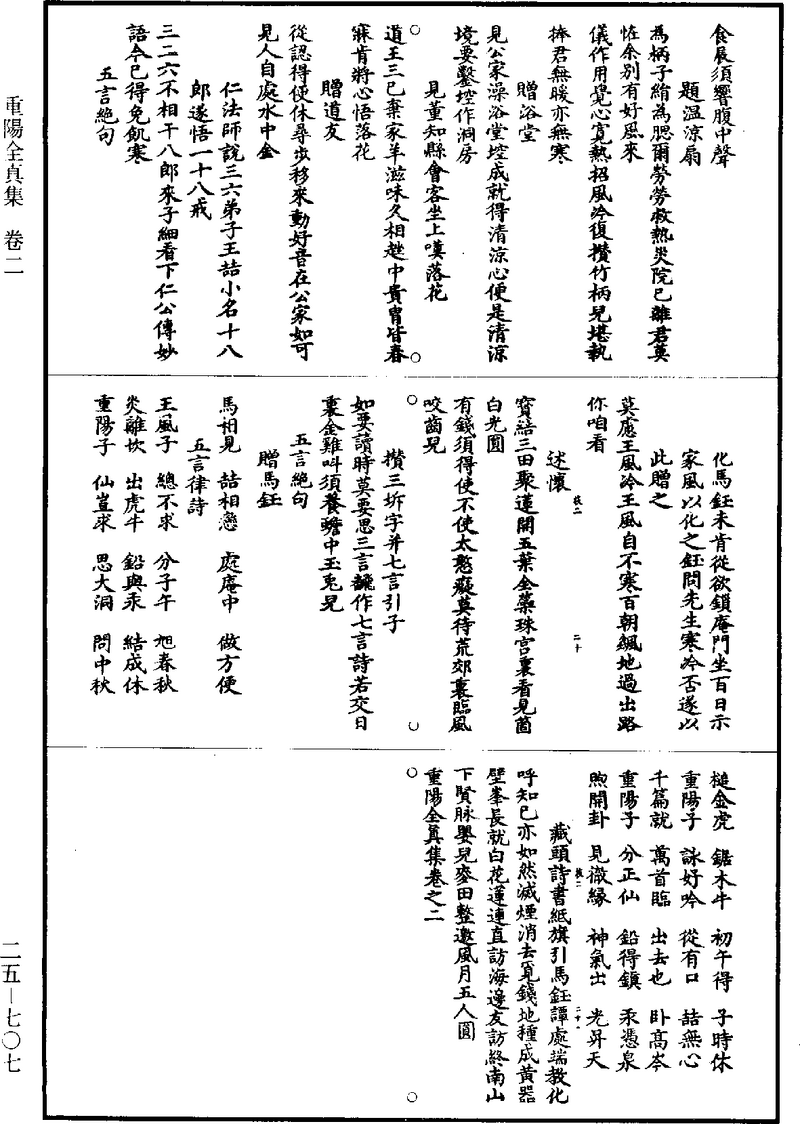 重陽全真集 卷二
二五—七〇七
食展須響腹中聲
題溫涼扇
為柄子綃為腮爾勞勞救熱炎院已離君莫
恠余別有好風來
儀作用覺心寬熱招風冷復攢竹柄兒堪執
捧君無暖亦無寒
贈浴堂
見公家澡浴堂堂成就得清涼心便是清涼
境要鑿堂作洞房
見董知縣會客坐上嘆落花
道王三已棄家羊滋味久相趖中貴胄皆春
寐肯將心悟落花
贈道友
從認得便休尋歩移來動好音在公家如可
見人自處水中金
仁法師說三六弟子王喆小名十八
郎遂悟一十八戒
三二六不相干八郎來子細看下仁公傳妙
語今已得免飢寒
五言絶句
化馬鈺未肯從欲鎖庵門坐百日示
家風以化之鈺問先生寒冷否遂以
此贈之
莫慮王風冷王風自不寒百朝飆地過出路
你咱看
述懷
寶結三田聚蓮開五葉全蘂珠宫裏看見箇
白光圓
有錢須得使不使太憨癡莫待荒郊裏臨風
咬齒兒
攢三拆字并七言引子
如要讀時莫要思三言䚢作七言詩若交日
裏金雞呌須養蟾中玉兎兒
五言絶句
贈馬鈺
馬相見 喆相戀 處庵中 做方便
五言律詩
王風子 總不求 分子午 旭春秋
炎離坎 出虎牛 鉛與汞 結成休
重陽子 仙豈求 思大洞 問中秋
槌金虎 鋸木牛 初午得 子時休
重陽子 詠好吟 從有口 喆無心
千篇就 萬首臨 出去也 卧高岑
重陽子 分正仙 鉛得鎮 汞憑泉
煦開卦 見徹緣 神氣出 光昇天
藏頭詩書紙旗引馬鈺譚處端教化
呼知已亦如然滅煙消去覓錢地種成黄器
壁峯長就白花蓮連直訪海邊友訪終南山
下賢脉嬰兒麥田整邀風月五人圓
重陽全眞集卷之二